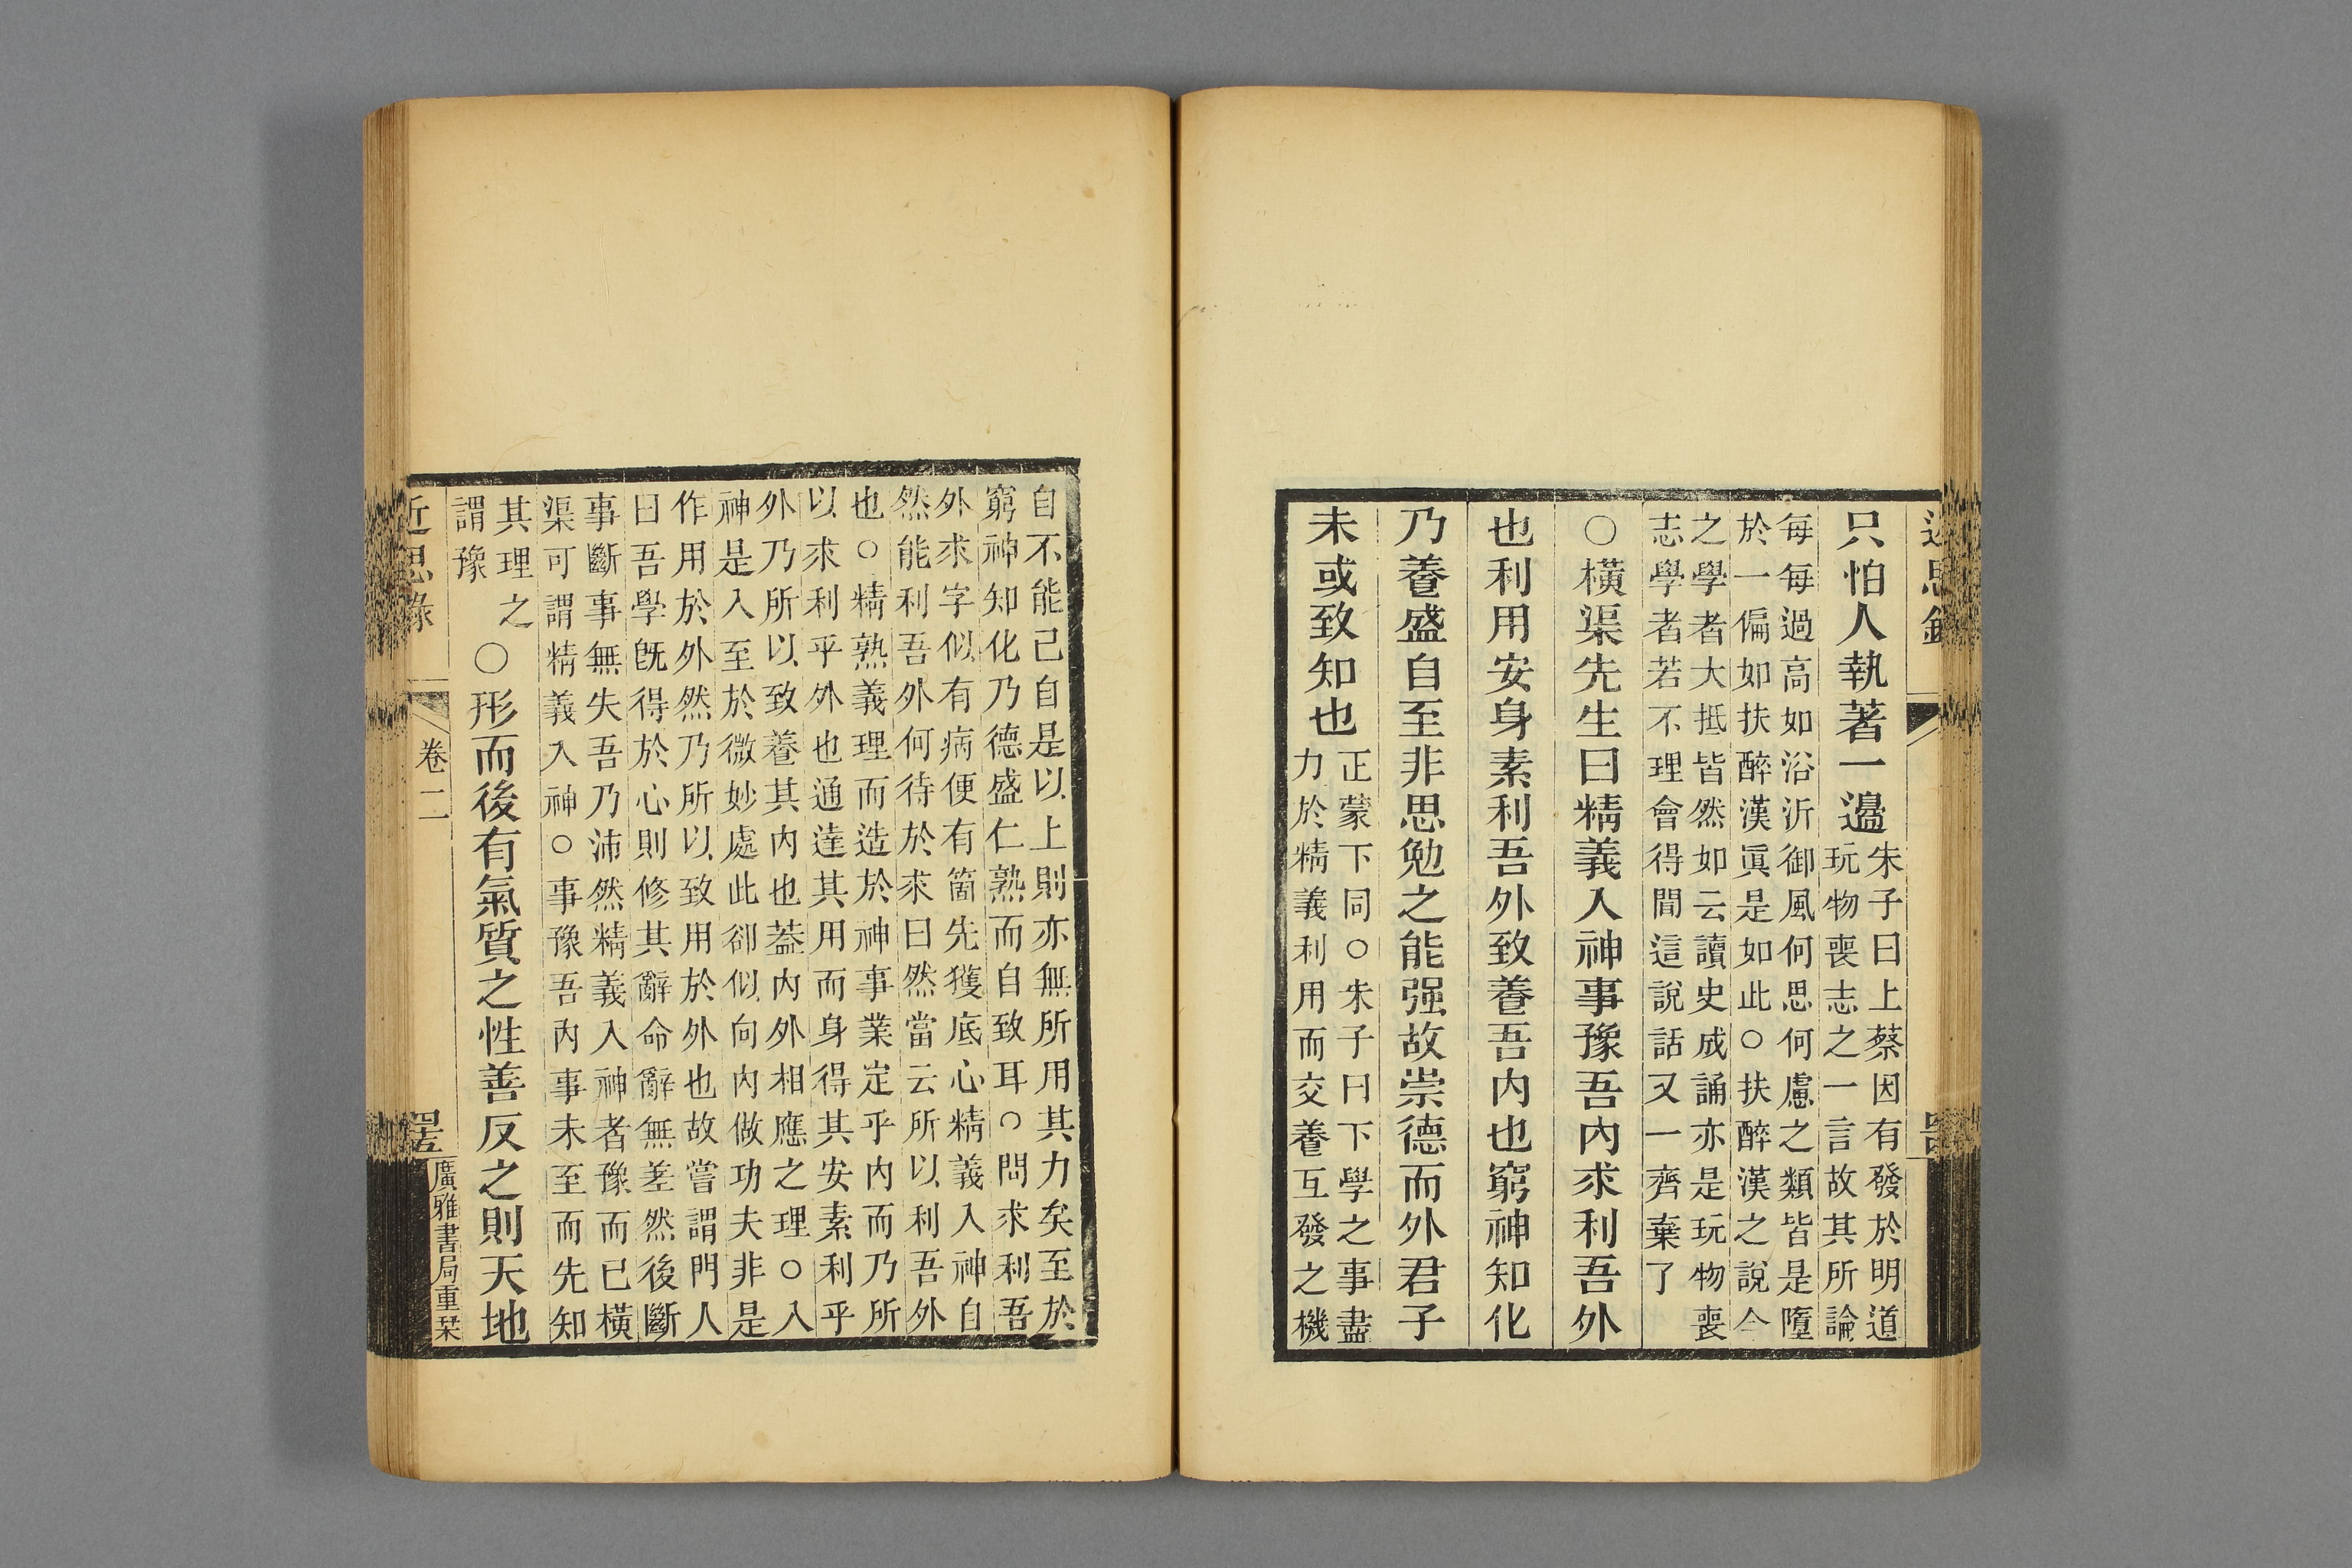 近思錄
只怕人執著一邊
朱子曰上蔡因有發於明道
玩物喪志之一言故其所論
每每過高如浴沂御風何思何慮之類皆是墮
於一偏如扶醉漢眞是如此○扶醉漢之說今
之學者大抵皆然如云讀史成誦亦是玩物喪
志學者若不理會得聞這說話又一齊棄了
○橫渠先生曰精義入神事豫吾內求利吾外
也利用安身素利吾外致養吾內也窮神知化
乃養盛自至非思勉之能强故崇德而外君子
未或致知也
正蒙下同○朱子曰下學之事盡
力於精義利用而交養互發之機
自不能已自是以上則亦無所用其力矣至於
窮神知化乃德盛仁熟而自致耳○問求利吾
外求字似有病便有箇先獲底心精義入神自
然能利吾外何待於求曰然當云所以利吾外
也○精熟義理而造於神事業定乎內而乃所
以求利乎外也通達其用而身得其安素利乎
外乃所以致養其內也葢內外相應之理○入
神是入至於微妙處此卻似向內做功夫非是
作用於外然乃所以致用於外也故嘗謂門人
曰吾學旣得於心則修其辭命辭無差然後斷
事斷事無失吾乃沛然精義入神者豫而已橫
渠可謂精義入神○事豫吾內事未至而先知
其理之
謂豫
○形而後有氣質之性善反之則天地
近思錄
卷二
廣雅書局重栞